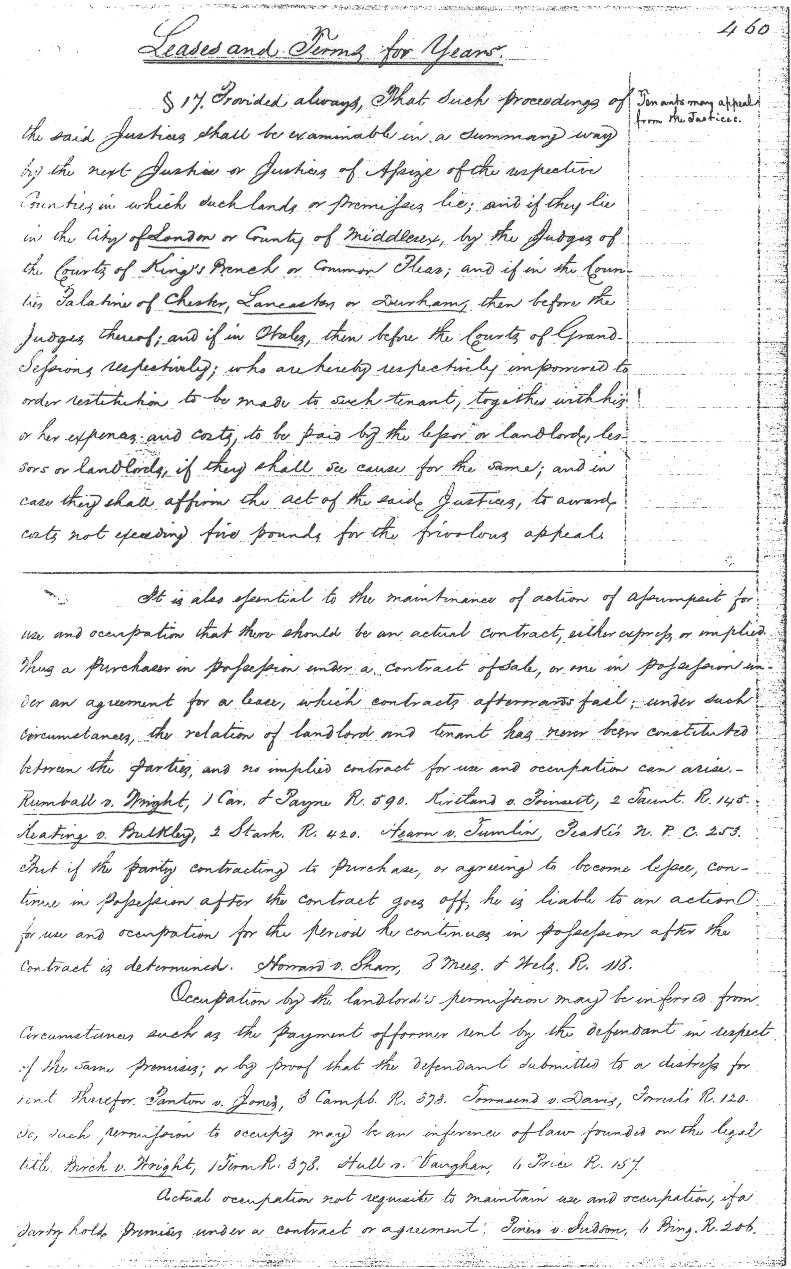 460
Leases and Terms for Years.
§ 17. Provided always, That such proceedings of
Tenants may appeal
from the Justices.
the said Justices shall be examinable in a summary way
by the next Justice or Justices of Assize of the respective
Counties in which such lands or premisses lie; and if they lie
in the City of London or County of Middlesex, by the Judges of
the Courts of King's Bench or Common Pleas; and if in the Coun-
ties Palatine of Chester, Lancaster or Durham, then before the
Judges thereof; and if in Wales, then before the Courts of Grand
Sessions respectively; who are hereby respectively impowered to
order restitution to be made to such tenant, together with his
or her expenses and costs, to be paid by the lessor or landlord, les-
sors or landlords, if they shall see cause for the same; and in
case they shall affirm the act of the said Justices, to award
costs not exceeding five pounds for the frivolous appeal.
It is also essential to the maintinance of action of assumpsit for
use and occupation that there should be an actual contract, either express or implied.
Thus a purchaser in possession under a contract of sale, or one in possession un-
der an agreement for a lease, which contracts afterwards fail; under such
circumstances, the relation of landlord and tenant has never been constituted
between the parties, and no implied contract for use and occupation can arise.-
Rumball v. Wright, 1 Car. & Payne R. 590. Kirtland v. Poinsett, 2 Taunt. R. 145.
Keating v. Bulkley, 2 Stark. R. 420. Hearn v. Tumlin, Peake's N. P. C. 253.
But if the party contracting to purchase, or agreeing to become lessee, con-
tinue in possession after the contract goes off, he is liable to an action
for use and occupation for the period he continues in possession after the
contract is determined. Howard v. Shaw, 8 Mees. & Wels. R. 118.
Occupation by the landlord's permission may be inferred from
circumstances such as the payment of former rent by the defendant in respect
of the same premises; or by proof that the defendant submitted to a distress for
rent therefor. Panton v. Jones, 3 Campb. R. 373. Townsend v. Davis, Forrest's R. 120.
So, such permission to occupy may be an inference of law founded on the legal
title. Birch v. Wright, 1 Term R. 378. Hull v. Vaughan, 6 Price R. 157.
Actual occupation not requisite to maintain use and occupation, if a
party hold premises under a contract or agreement. Pinero v. Judson, 6 Bing. R. 206.